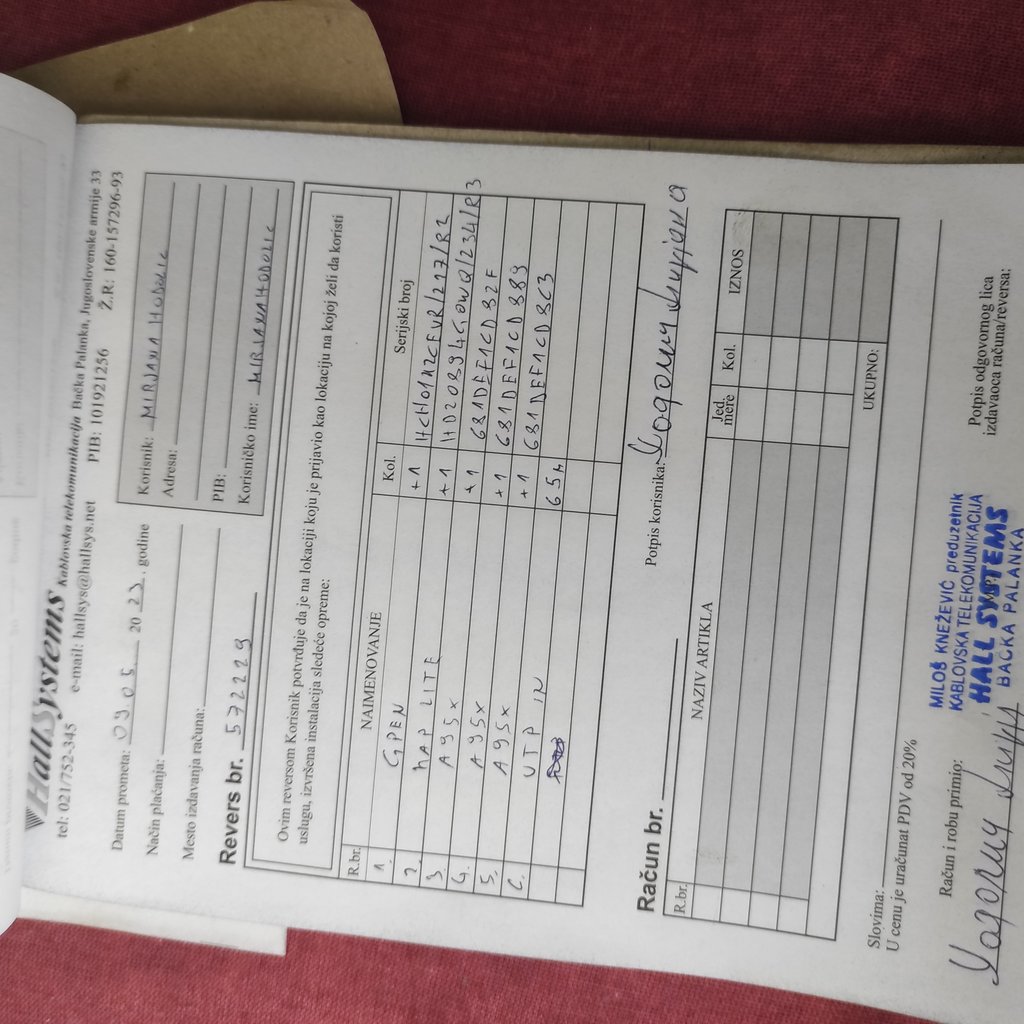 HallSystems Kablovska telekomunikacija Bačka Palanka, Jugoslovenske armije 33
tel: 021/752-345 e-mail: hallsys@hallsys.net PIB: 101921256 Ž.R: 160-157296-93
Datum prometa: 09.05. 20 23. godine
Način plaćanja:
Mesto izdavanja računa:
Revers br. 572229
Korisnik: MIRJANA HODOLIC
Adresa:
PIB:
Korisničko ime: MIRJANAHODOLIC
Ovim reversom Korisnik potvrđuje da je na lokaciji koju je prijavio kao lokaciju na kojoj želi da koristi
uslugu, izvršena instalacija sledeće opreme:
R.br. NAIMENOVANJE Kol. Serijski broj
1. GPEN +1 HCH01N2CEVR/217/R2
2. hAP LITE +1 HD20894GOWQ/234/R3
3. A95X +1 681DEF1CDB2F
4. A95X +1 681DEF1CDB89
5. A95X +1 681DEF1CDBC3
6. UTP IN 65m
Potpis korisnika: Ходолич Мирјана
Račun br.
R.br. NAZIV ARTIKLA Jed. mere Kol. IZNOS
UKUPNO:
Slovima:
U cenu je uračunat PDV od 20%
Račun i robu primio:
Potpis odgovornog lica
izdavaoca računa/reversa:
MILOŠ KNEŽEVIĆ preduzetnik
KABLOVSKA TELEKOMUNIKACIJA
HALL SYSTEMS
BAČKA PALANKA